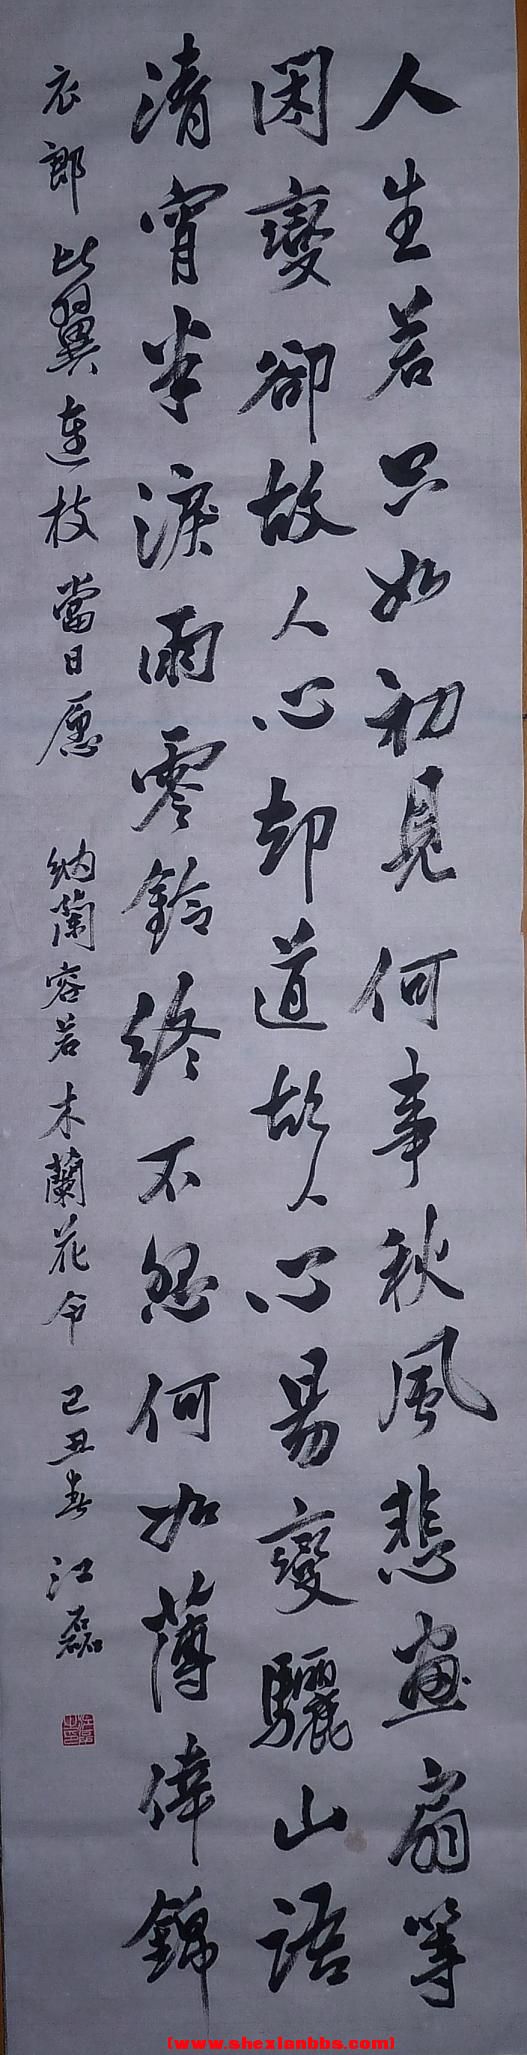 人生若只如初見何事秋風悲畫扇等
閑變卻故人心却道故人心易變驪山語
清宵半淚雨零鈴終不怨何如薄倖錦
衣郎比翼連枝當日愿 納蘭容若木蘭花令 己丑春 江磊
(www.shexianbbs.com)